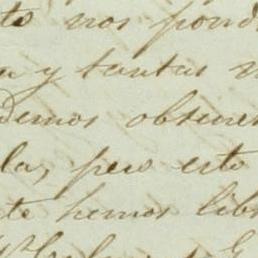 te nos pond
a y tantas
demos obser
la, pero esto
te hemos lib